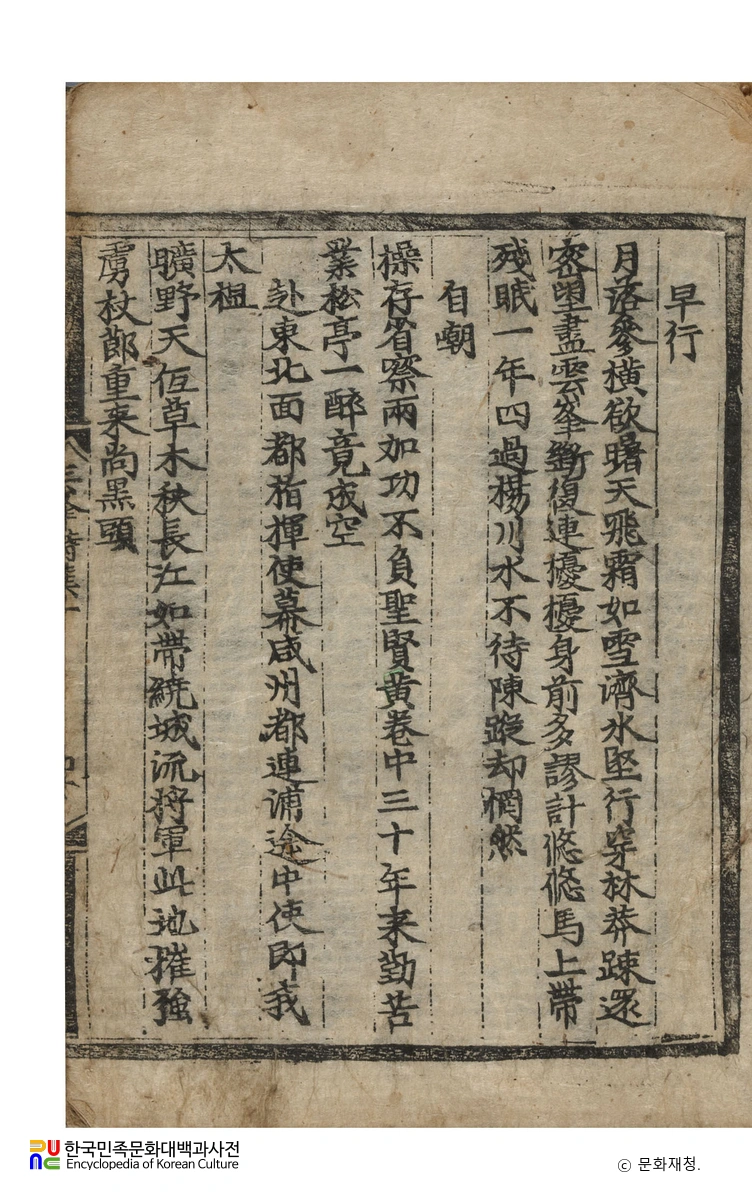 早行
月落參橫欲曙天飛霜如雪濟水堅行穿林莽疎還
密望盡雲峯斷復連擾擾身前多謬計悠悠馬上帶
殘眠一年四過楊川水不待陳蹤却惘然
自嘲
操存省察兩加功不負聖賢黄卷中三十年来勤苦
業松亭一醉竟成空
赴東北面都指揮使幕咸州都連浦途中使即我
太祖
曠野天低草木秋長江如帶繞城流將軍此地摧强
虜杖鄭重来尚黒頭
한국민족문화대백과사전
Encyclopedia of Korean Culture
© 문화재청.